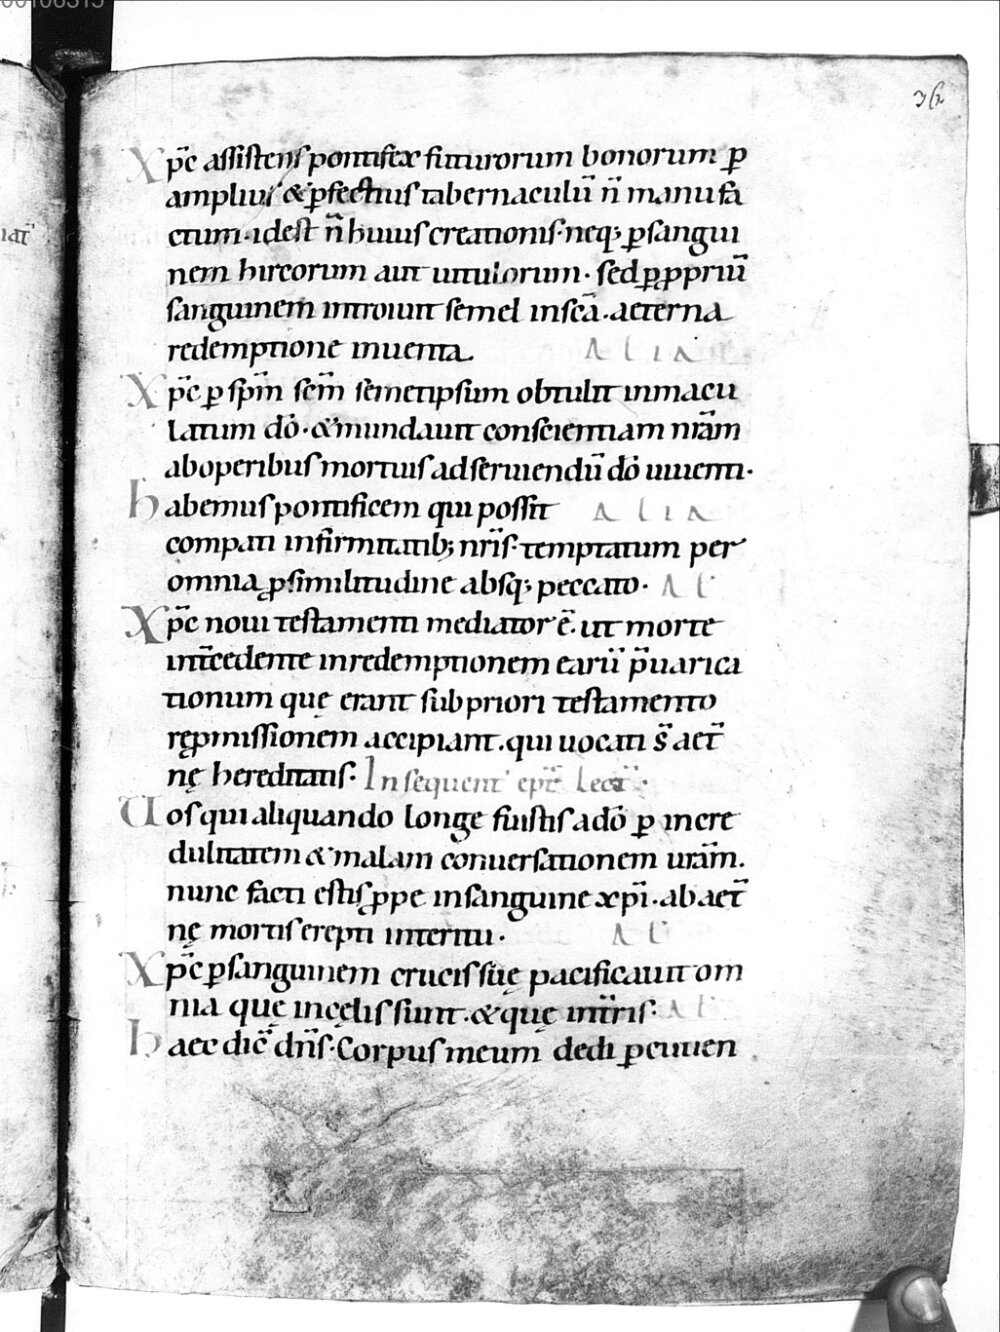 36
Xp̄c assistens pontifex futurorum bonorum ꝑ
amplius & ꝑfectius tabernaculū n̄ manufa
ctum · idest n̄ huius creationis · neq; ꝑ sangui
nem hircorum aut uitulorum · sed ꝑ ꝓpriū
sanguinem introiuit semel in sc̄a · aeterna
redemptione inuenta . ALIA
Xp̄c ꝑ sp̄m sc̄m semetipsum obtulit inmacu
latum dō · & mundauit conscientiam nr̄am
ab operibus mortuis ad seruiendū dō uiuenti ·
habemus pontificem qui possit ALIA
compati infirmitatib; nr̄is · temptatum per
omnia ꝓ similitudine absq; peccato · AL
Xp̄c noui testamenti mediator ē · ut morte
int̄cedente in redemptionem earū p̄uarica
tionum quę erant sub priori testamento
rępmissionem accipiant . qui uocati s̄ aet̄
nę hereditatis · In sequent ep̄t Lect̄ ·
Uos qui aliquando longe fuistis a dō ꝑ incre
dulitatem & malam conuersationem ur̄am .
nunc facti estis ꝓpe in sanguine xp̄i · ab aet̄
nę mortis erepti interitu · AL
Xp̄c ꝑ sanguinem crucis sūę pacificauit om
nia quę in cęlis sunt . & quę in t̄ris · AL
haec dic̄ dn̄s · Corpus meum dedi ꝑcutien